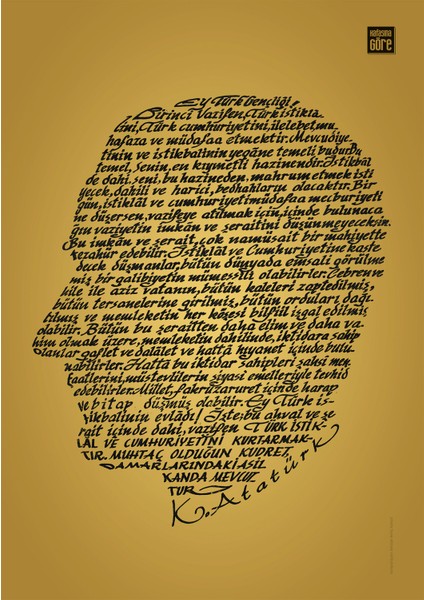 Kafasına
GÖRE
Ey Türk Gençliği,
Birinci Vazifen, Türk istiklâ-
lini, Türk cumhuriyetini, ilelebet, mu-
hafaza ve müdafaa etmektir. Mevcudiye-
tinin ve istikbalinin yegâne temeli budur. Bu
temel, senin, en kıymetli hazinendir. İstikbâl
de dahi, seni, bu hazineden, mahrum etmek isti
yecek, dahili ve harici, bedhahların olacaktır. Bir
gün, istiklâl ve cumhuriyeti müdafaa mecburiyeti
ne düşersen, vazifeye atılmak için, içinde bulunaca
ğın vaziyetin imkân ve şeraitini düşünmeyeceksin.
Bu imkân ve şerait, çok namüsait bir mahiyette
tezahür edebilir. İstiklâl ve Cumhuriyetine kaste
decek düşmanlar, bütün dünyada emsali görülme
miş bir galibiyetin mümessili olabilirler. Cebren ve
hile ile aziz vatanın, bütün kaleleri zaptedilmiş,
bütün tersanelerine girilmiş, bütün orduları dağı-
tılmış ve memleketin her köşesi bilfiil işgal edilmiş
olabilir. Bütün bu şeraitten daha elim ve daha va-
him olmak üzere, memleketin dahilinde, iktidara sahip
olanlar gaflet ve dalâlet ve hattâ hıyanet içinde bulu-
nabilirler. Hattâ bu iktidar sahipleri şahsi men-
faatlerini, müstevlilerin siyasi emelleriyle tevhid
edebilirler. Millet, fakrü zaruret içinde harap
ve bitap düşmüş olabilir. Ey Türk is-
tikbalinin evlâdı! İşte, bu ahval ve şe-
rait içinde dahi, vazifen TÜRK İSTİK-
LÂL VE CUMHURİYETİNİ KURTARMAK-
TIR. MUHTAÇ OLDUĞUN KUDRET,
DAMARLARINDAKİ ASİL
KANDA MEVCUT
TUR
K. Atatürk